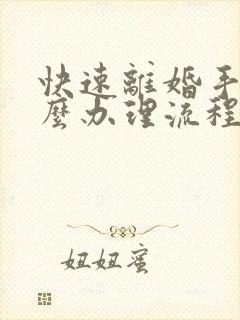 快速離婚手
麼办理流程
妞妞蜜